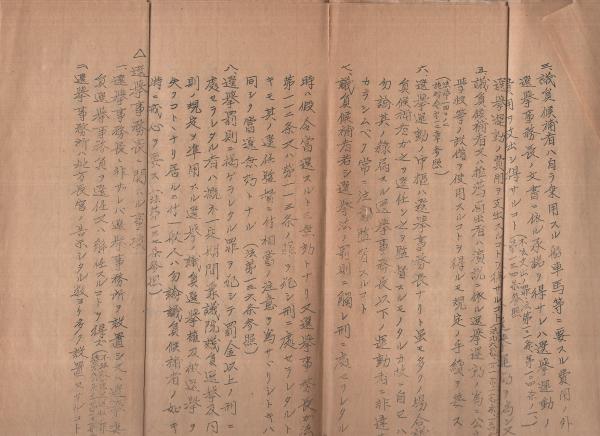 三、議員候補者ハ自ラ乗用スル船車馬等ニ要スル費用ノ外
選挙事務長ノ文書ニ依ル承諾ヲ得サレハ選挙運動ノ
費用ヲ支出シ得サルコト
選挙運動ノ費用ヲ支出スルコトヲ得サルコト
五、議員候補者又ハ推薦届出者ハ演説ニ依ル選挙運動ノ為ニ公立
学校等ノ設備ヲ使用スルコトヲ得ルモ規定ノ手続ヲ要ス
六、選挙運動ノ中枢ハ選挙事務長ナリト雖モ多クノ場合議
員候補者カ之ヲ選任シ之ヲ監督スルモノナルカ故ニ自己ハ
勿論其ノ総師スル選挙事務長以下ノ運動者ニ非違ナ
カラシムベク常ニ注意監督スルコト
七、議員候補者若シ選挙法ノ罰則ニ触レ刑ニ処セラレタル
時ハ假令当選スルト
第一一二条又ハ第一一三条ノ罪ヲ犯シ刑ニ処セラレタルト
キモ其ノ選任監督ニ付相当ノ注意ヲ為サヾリシトキハ
同ジク当選無効トナル(法第一三六条参照)
八、選挙罰則ニ掲ゲラレタル罪ヲ犯シテ罰金以上ノ刑ニ
処セラレタル者ハ概ネ五年間衆議院議員選挙及同
則ノ規定ヲ準用スル選挙ノ議員選挙権及被選挙権ヲ
失フコトヽナリ居ルニ付一般人ハ勿論議員候補者ノ如キ
特ニ戒心ヲ要ス(法第一三七条参照)
△選挙事務長ニ関スル事項
一、選挙事務長ニ非サレハ選挙事務所ヲ設置シ又ハ選挙委
員選挙事務員ヲ選任又ハ解任スルコトヲ得ス
二、選挙事務所ハ地方長官ノ告示シタル数ヨリ多ク設置スルコト